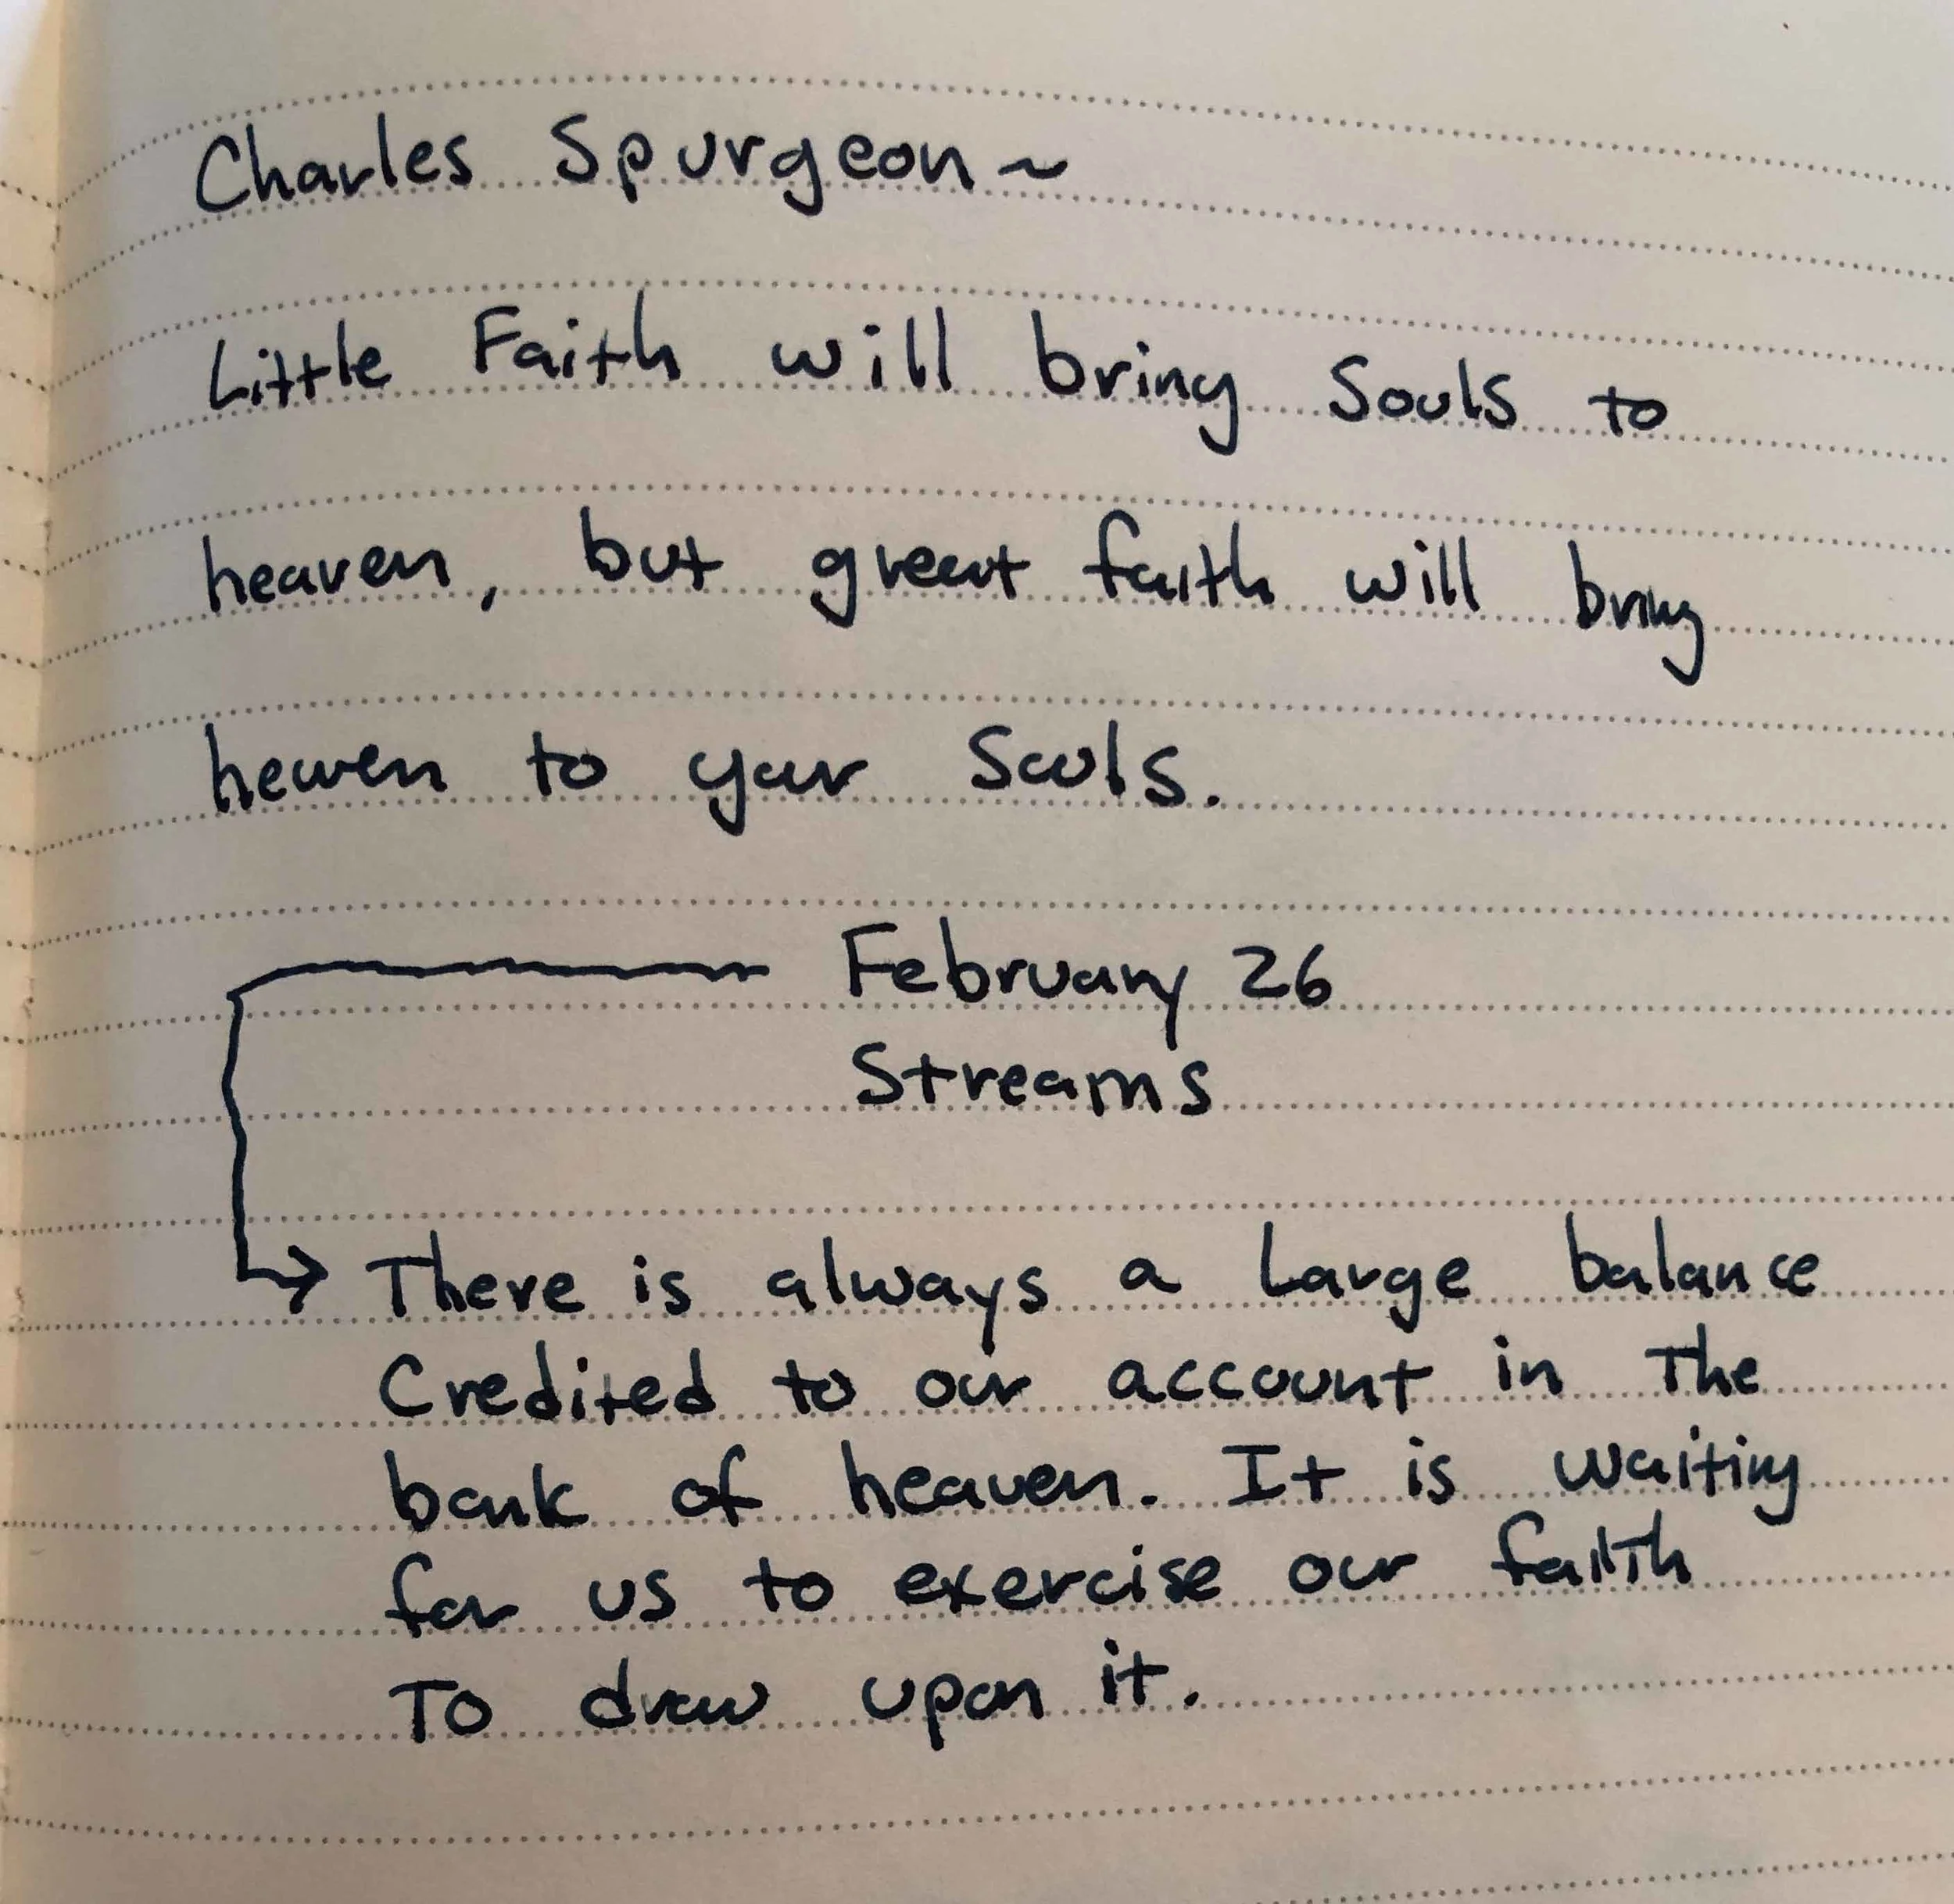 Charles Spurgeon ~
Little Faith will bring Souls to
heaven, but great faith will bring
heaven to your Souls.
February 26
Streams
→ There is always a Large balance
Credited to our account in The
bank of heaven. It is waiting
for us to exercise our faith
To draw upon it.